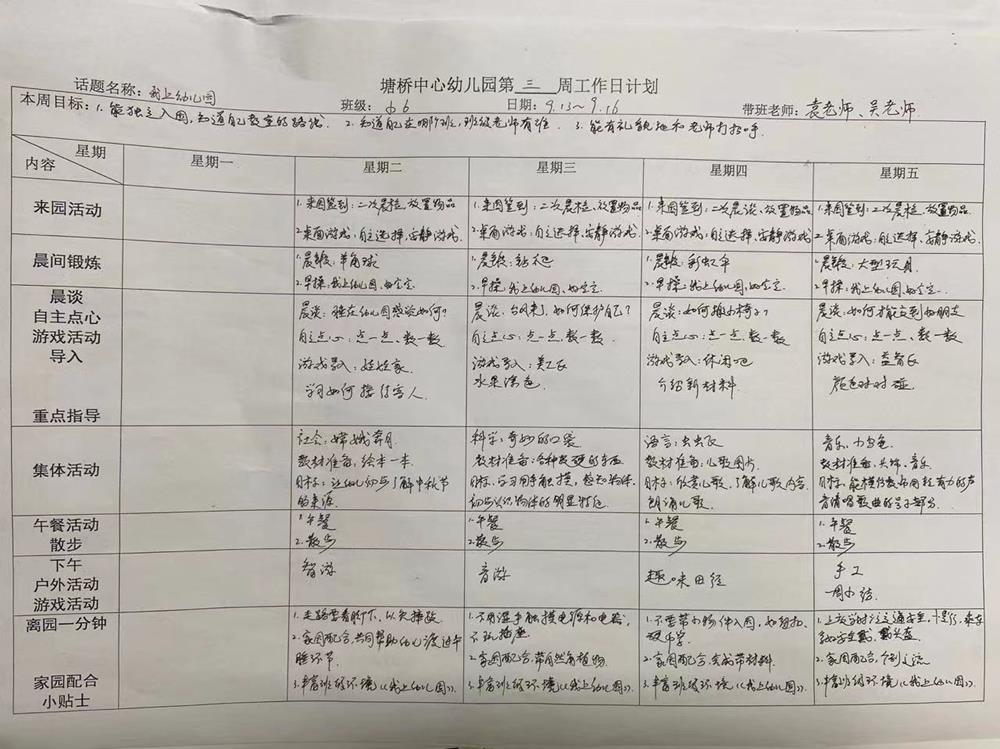 塘桥中心幼儿园第 三 周工作日计划
话题名称：我上幼儿园
班级：小6
日期：9.13~9.16
带班老师：袁老师、吴老师
本周目标：1.能独立入园，知道自己教室的路线。 2.知道自己在哪个班，班级老师有谁。 3.能有礼貌地和老师打招呼。
星期
内容
星期一
星期二
星期三
星期四
星期五
来园活动
1.来园签到：二次晨检、放置物品
2.桌面游戏：自主选择、安静游戏.
1.来园签到：二次晨检、放置物品
2.桌面游戏：自主选择、安静游戏
1.来园签到：二次晨谈、放置物品
2.桌面游戏：自主选择、安静游戏
1.来园签到：二次晨检、放置物品
2.桌面游戏：自主选择、安静游戏
晨间锻炼
1.晨锻：羊角球
2.早操：我上幼儿园、
1.晨锻：钻
2.早操：我上幼儿园、
1.晨锻：彩虹伞
2.早操：我上幼儿园、
1.晨锻：大型玩具
2.早操：我上幼儿园、
晨谈
自主点心
游戏活动
导入
重点指导
晨谈：我在幼儿园感觉如何？
自主点心：点一点、数一数
游戏导入：娃娃家
学习如何接待客人
晨谈：台风来了，如何保护自己？
自主点心：点一点、数一数
游戏导入：美工区
水果涂色
晨谈：如何搬小椅子？
自主点心：点一点、数一数
游戏导入：休闲吧
介绍新材料
晨谈：如何才能交到好朋友
自主点心：点一点、数一数
游戏导入：益智区
颜色对对碰
集体活动
社会：嫦娥奔月
教材准备：绘本一本
目标：让幼儿初步了解中秋节
的来源
科学：奇妙的口袋
教材准备：各种软硬的东西
目标：学习用手触摸，感知物体，
初步认识物体的明显特征
语言：虫虫飞
教材准备：儿歌图片
目标：欣赏儿歌，了解儿歌内容
朗诵儿歌
音乐：小乌龟
教材准备：头饰、音乐
目标：能模仿表演用轻有力的声
音情唱歌曲的部分
午餐活动
散步
1.午餐
2.散步
1.午餐
2.散步
1.午餐
2.散步
1.午餐
2.散步
下午
户外活动
游戏活动
智游
音游
趣味田径
手工
一周小结
离园一分钟
家园配合
小贴士
1.走路要看脚下，以免摔跤
2.家园配合，共同帮助幼儿渡过午
睡环节
3.丰富班级环境《我上幼儿园》
1.不用湿手触摸电源和电器，
不玩插座
2.家园配合，带自然角植物
3.丰富班级环境《我上幼儿园》
1.不要带小物件入园，如纽扣、
硬币等
2.家园配合，完成带材料
3.丰富班级环境《我上幼儿园》
1.上放学时注意交通安全，
2.家园配合，个别交流
3.丰富班级环境《我上幼儿园》